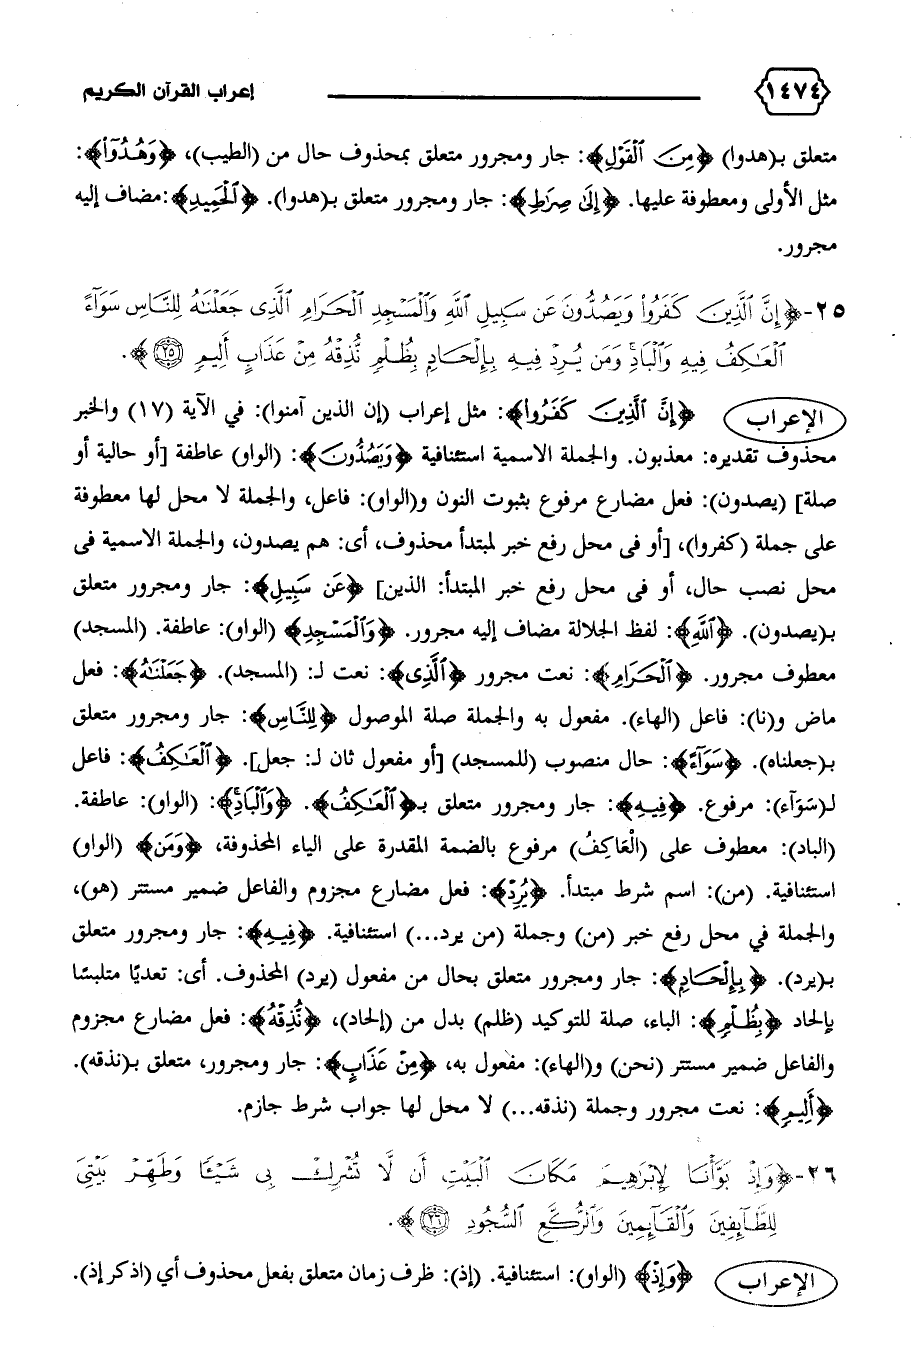 ١٤٧٤ إعراب القرآن الكريم
متعلق بـ(هدوا) ﴿مِنَ ٱلْقَوْلِ﴾: جار ومجرور متعلق بمحذوف حال من (الطيب)، ﴿وَهُدُوٓا۟﴾:
مثل الأولى ومعطوفة عليها. ﴿إِلَىٰ صِرَٰطِ﴾: جار ومجرور متعلق بـ(هدوا). ﴿ٱلْحَمِيدِ﴾:مضاف إليه
مجرور.
٢٥-﴿إِنَّ ٱلَّذِينَ كَفَرُوا۟ وَيَصُدُّونَ عَن سَبِيلِ ٱللَّهِ وَٱلْمَسْجِدِ ٱلْحَرَامِ ٱلَّذِى جَعَلْنَـٰهُ لِلنَّاسِ سَوَآءً
ٱلْعَـٰكِفُ فِيهِ وَٱلْبَادِ ۚ وَمَن يُرِدْ فِيهِ بِإِلْحَادٍۭ بِظُلْمٍ نُّذِقْهُ مِنْ عَذَابٍ أَلِيمٍ ٢٥﴾.
الإعراب ﴿إِنَّ ٱلَّذِينَ كَفَرُوا۟﴾: مثل إعراب (إن الذين آمنوا): في الآية (١٧) والخبر
محذوف تقديره: معذبون. والجملة الاسمية استئنافية ﴿وَيَصُدُّونَ﴾: (الواو) عاطفة [أو حالية أو
صلة] (يصدون): فعل مضارع مرفوع بثبوت النون و(الواو): فاعل، والجملة لا محل لها معطوفة
على جملة (كفروا)، [أو فى محل رفع خبر لمبتدأ محذوف، أى: هم يصدون، والجملة الاسمية فى
محل نصب حال، أو فى محل رفع خبر المبتدأ: الذين] ﴿عَن سَبِيلِ﴾: جار ومجرور متعلق
بـ(يصدون). ﴿ٱللَّهِ﴾: لفظ الجلالة مضاف إليه مجرور. ﴿وَٱلْمَسْجِدِ﴾ (الواو): عاطفة. (المسجد)
معطوف مجرور. ﴿ٱلْحَرَامِ﴾: نعت مجرور ﴿ٱلَّذِى﴾: نعت لـ: (المسجد). ﴿جَعَلْنَـٰهُ﴾: فعل
ماض و(نا): فاعل (الهاء). مفعول به والجملة صلة الموصول ﴿لِلنَّاسِ﴾: جار ومجرور متعلق
بـ(جعلناه). ﴿سَوَآءً﴾: حال منصوب (للمسجد) [أو مفعول ثان لـ: جعل]. ﴿ٱلْعَـٰكِفُ﴾: فاعل
لـ(سَوَآء): مرفوع. ﴿فِيهِ﴾: جار ومجرور متعلق بـ﴿ٱلْعَـٰكِفُ﴾. ﴿وَٱلْبَادِ ۚ﴾: (الواو): عاطفة.
(الباد): معطوف على (الْعَاكِفُ) مرفوع بالضمة المقدرة على الياء المحذوفة، ﴿وَمَن﴾ (الواو)
استئنافية. (من): اسم شرط مبتدأ. ﴿يُرِدْ﴾: فعل مضارع مجزوم والفاعل ضمير مستتر (هو)،
والجملة في محل رفع خبر (من) وجملة (من يرد...) استئنافية. ﴿فِيهِ﴾: جار ومجرور متعلق
بـ(يرد). ﴿بِإِلْحَادٍ﴾: جار ومجرور متعلق بحال من مفعول (يرد) المحذوف. أى: تعديًا متلبسًا
بإلحاد ﴿بِظُلْمٍ﴾: الباء، صلة للتوكيد (ظلم) بدل من (إلحاد)، ﴿نُّذِقْهُ﴾: فعل مضارع مجزوم
والفاعل ضمير مستتر (نحن) و(الهاء): مفعول به، ﴿مِنْ عَذَابٍ﴾: جار ومجرور، متعلق بـ(نذقه).
﴿أَلِيمٍ﴾: نعت مجرور وجملة (نذقه...) لا محل لها جواب شرط جازم.
٢٦-﴿وَإِذْ بَوَّأْنَا لِإِبْرَٰهِيمَ مَكَانَ ٱلْبَيْتِ أَن لَّا تُشْرِكْ بِى شَيْـًٔا وَطَهِّرْ بَيْتِىَ
لِلطَّآئِفِينَ وَٱلْقَآئِمِينَ وَٱلرُّكَّعِ ٱلسُّجُودِ ٢٦﴾.
الإعراب ﴿وَإِذْ﴾ (الواو): استئنافية. (إذ): ظرف زمان متعلق بفعل محذوف أي (اذكر إذ).